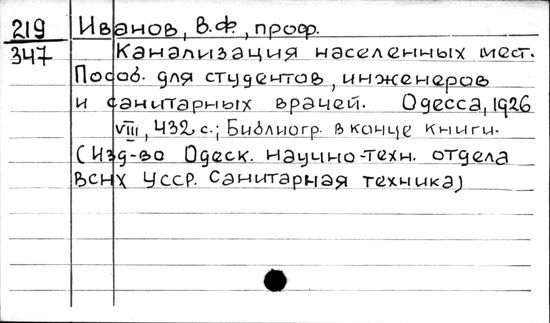 219 Иванов, В.Ф., проф.
347 Канализация населенных мест.
Пособ. для студентов, инженеров
и санитарных врачей. Одесса, 1926
VIII, 432 с.; Библиогр. в конце книги.
(Изд-во Одеск. научно-техн. отдела
ВСНХ УССР. Санитарная техника)